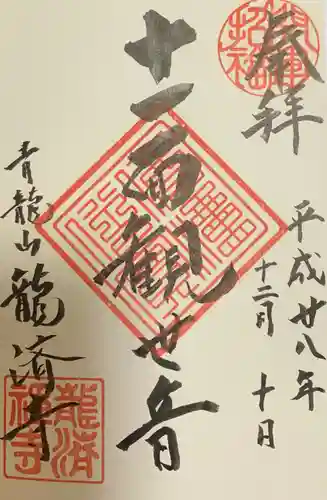 奉拝
開運招福
平成廿八年
十二月十日
十一面観世音
青龍山龍済寺
龍済禅寺